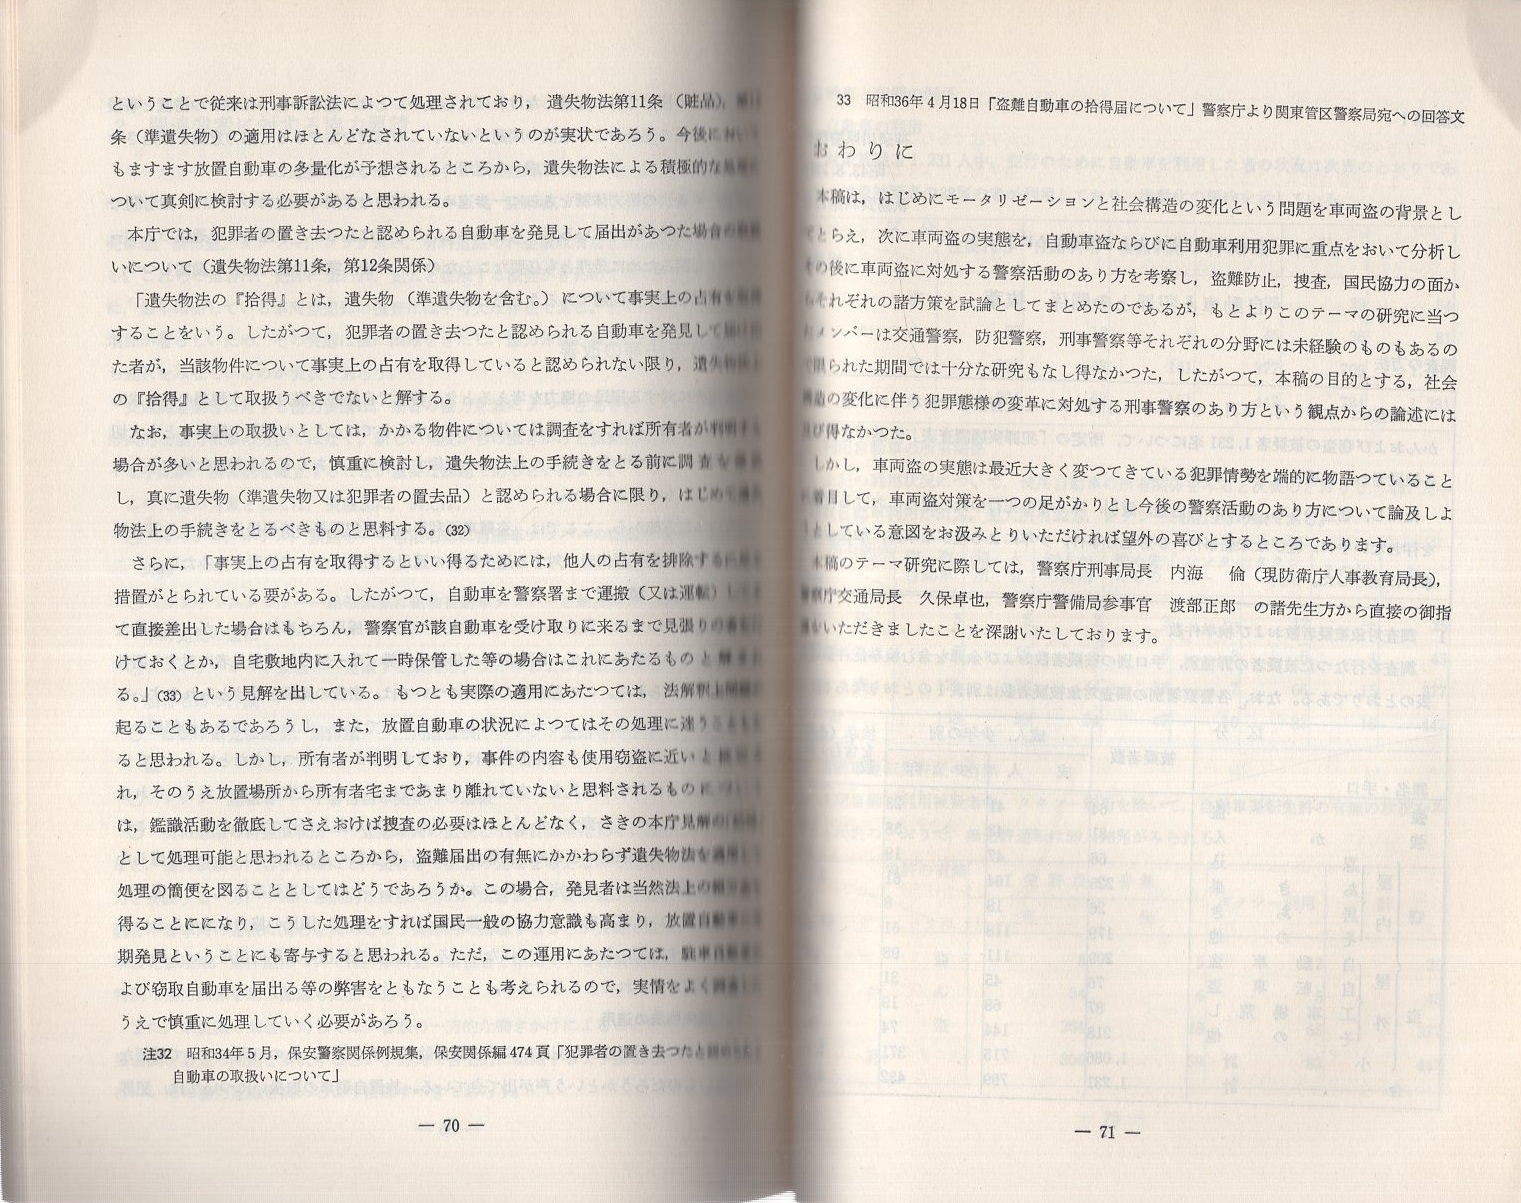 ということで従来は刑事訴訟法によつて処理されており，遺失物法第11条（賍品），
条（準遺失物）の適用はほとんどなされていないというのが実状であろう。今後に
もますます放置自動車の多量化が予想されるところから，遺失物法による積極的な
ついて真剣に検討する必要があると思われる。
本庁では，犯罪者の置き去つたと認められる自動車を発見して届出があつた場合の
いについて（遺失物法第11条，第12条関係）
「遺失物法の『拾得』とは，遺失物（準遺失物を含む。）について事実上の占有を
することをいう。したがつて，犯罪者の置き去つたと認められる自動車を発見して
た者が，当該物件について事実上の占有を取得していると認められない限り，遺失物
の『拾得』として取扱うべきでないと解する。
なお，事実上の取扱いとしては，かかる物件については調査をすれば所有者が判明
場合が多いと思われるので，慎重に検討し，遺失物法上の手続きをとる前に調査を
し，真に遺失物（準遺失物又は犯罪者の置去品）と認められる場合に限り，はじめて
物法上の手続きをとるべきものと思料する。(32)
さらに，「事実上の占有を取得するといい得るためには，他人の占有を排除する
措置がとられている要がある。したがつて，自動車を警察署まで運搬（又は運転）
て直接差出した場合はもちろん，警察官が該自動車を受け取りに来るまで見張りの
けておくとか，自宅敷地内に入れて一時保管した等の場合はこれにあたるものと
る。」(33) という見解を出している。もつとも実際の適用にあたつては，法解釈上
起ることもあるであろうし，また，放置自動車の状況によつてはその処理に迷うこと
ると思われる。しかし，所有者が判明しており，事件の内容も使用窃盗に近いと
れ，そのうえ放置場所から所有者宅まであまり離れていないと思料されるもの
は，鑑識活動を徹底してさえおけば捜査の必要はほとんどなく，さきの本庁見解の
として処理可能と思われるところから，盗難届出の有無にかかわらず遺失物法を
処理の簡便を図ることとしてはどうであろうか。この場合，発見者は当然法上の
得ることにになり，こうした処理をすれば国民一般の協力意識も高まり，放置自動車
期発見ということにも寄与すると思われる。ただ，この運用にあたつては，駐車自動車
よび窃取自動車を届出る等の弊害をともなうことも考えられるので，実情をよく
うえで慎重に処理していく必要があろう。
注32　昭和34年5月，保安警察関係例規集，保安関係編474頁「犯罪者の置き去つたと
自動車の取扱いについて」
— 70 —
33　昭和36年4月18日「盗難自動車の拾得届について」警察庁より関東管区警察局宛への回答文
おわりに
本稿は，はじめにモータリゼーションと社会構造の変化という問題を車両盗の背景とし
てとらえ，次に車両盗の実態を，自動車盗ならびに自動車利用犯罪に重点をおいて分析し
その後に車両盗に対処する警察活動のあり方を考察し，盗難防止，捜査，国民協力の面か
らそれぞれの諸方策を試論としてまとめたのであるが，もとよりこのテーマの研究に当つ
たメンバーは交通警察，防犯警察，刑事警察等それぞれの分野には未経験のものもあるの
で限られた期間では十分な研究もなし得なかつた，したがつて，本稿の目的とする，社会
構造の変化に伴う犯罪態様の変革に対処する刑事警察のあり方という観点からの論述には
及び得なかつた。
しかし，車両盗の実態は最近大きく変つてきている犯罪情勢を端的に物語つていること
に着目して，車両盗対策を一つの足がかりとし今後の警察活動のあり方について論及しよ
うとしている意図をお汲みとりいただければ望外の喜びとするところであります。
本稿のテーマ研究に際しては，警察庁刑事局長　内海　倫（現防衛庁人事教育局長），
警察庁交通局長　久保卓也，警察庁警備局参事官　渡部正郎　の諸先生方から直接の御指
導をいただきましたことを深謝いたしております。
— 71 —